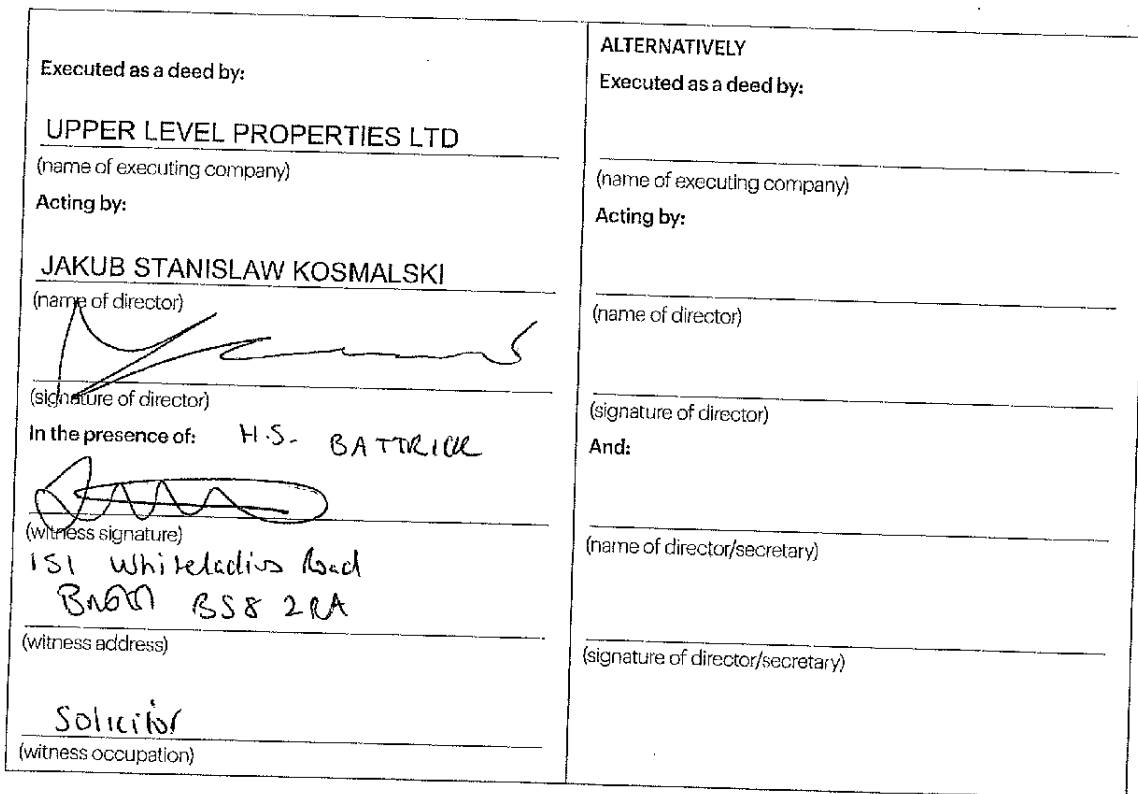 Executed as a deed by:
UPPER LEVEL PROPERTIES LTD
(name of executing company)
Acting by:
JAKUB STANISLAW KOSMALSKI
(name of director)
(signature of director)
In the presence of: H.S. BATTRICK
(witness signature)
151 Whiteladies Road
BS8 2RA
(witness address)
Solicitor
(witness occupation)
ALTERNATIVELY
Executed as a deed by:
(name of executing company)
Acting by:
(name of director)
(signature of director)
And:
(name of director/secretary)
(signature of director/secretary)